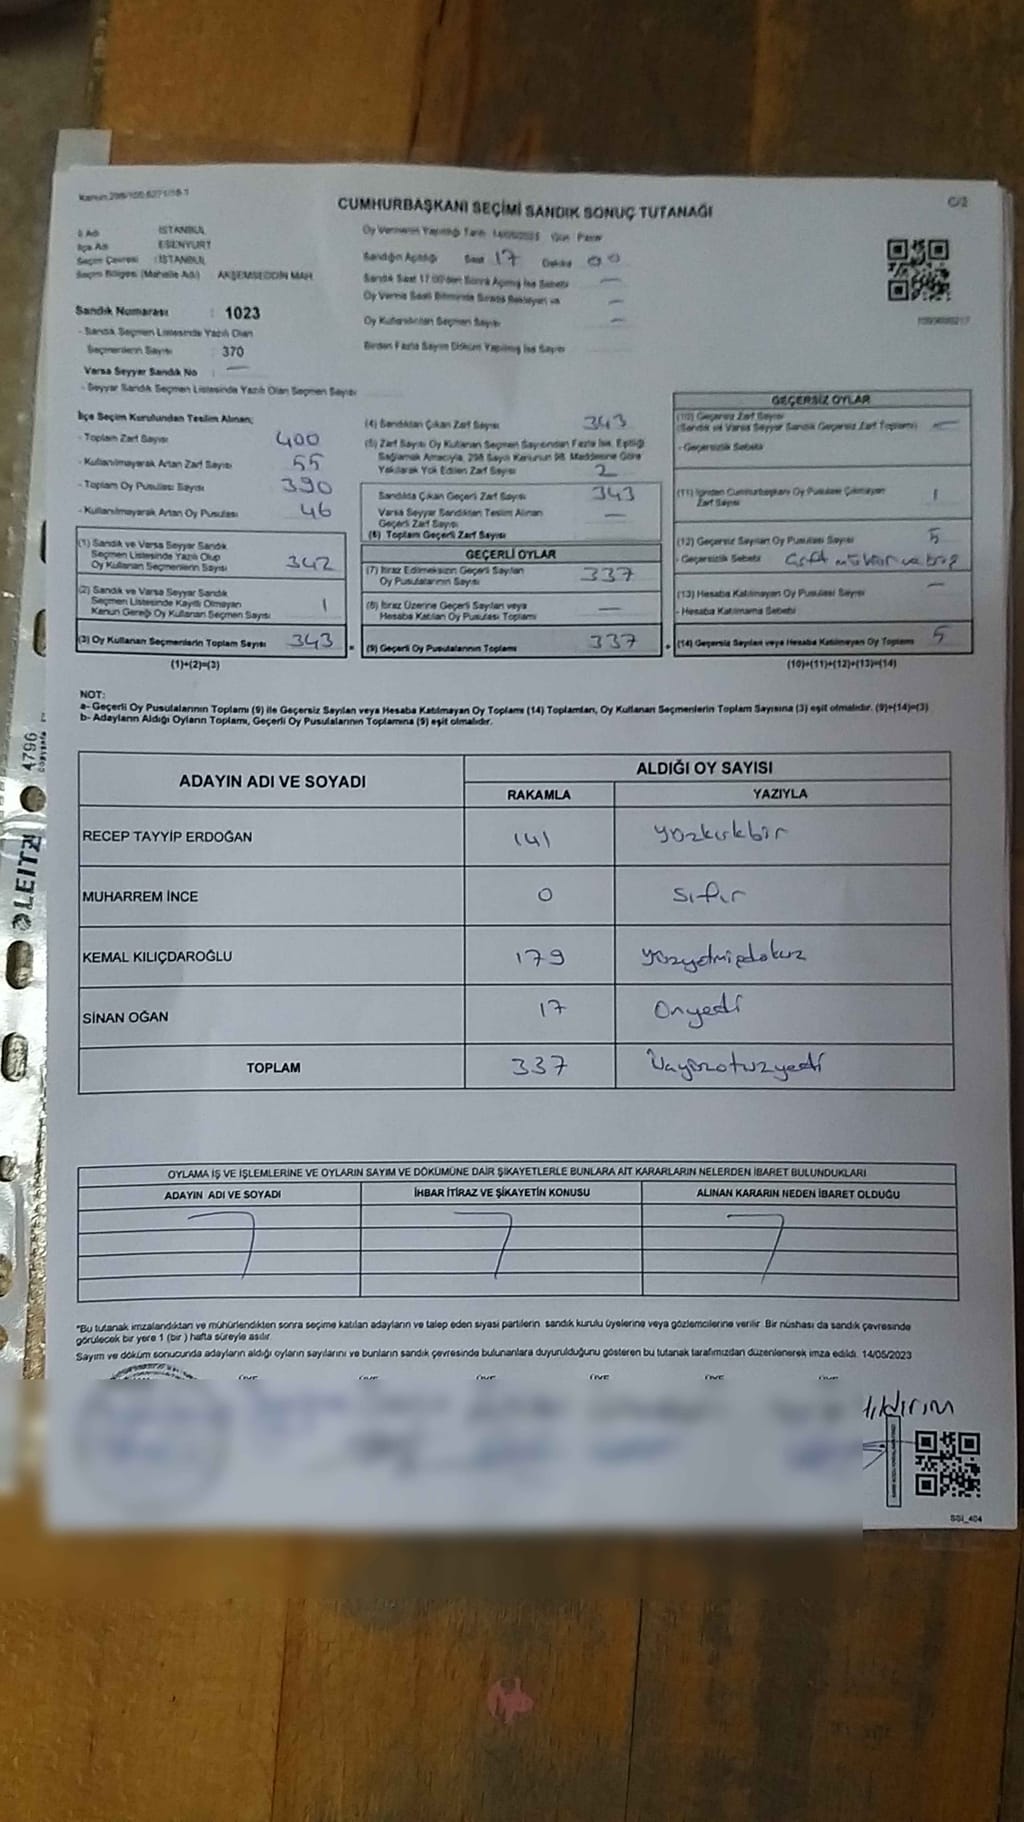 Kanun:298/100,6271/18-1
C/2
CUMHURBAŞKANI SEÇİMİ SANDIK SONUÇ TUTANAĞI
İl Adı : İSTANBUL
İlçe Adı : ESENYURT
Seçim Çevresi : İSTANBUL
Seçim Bölgesi (Mahalle Adı) : AKŞEMSEDDİN MAH.
Sandık Numarası : 1023
- Sandık Seçmen Listesinde Yazılı Olan
Seçmenlerin Sayısı : 370
Varsa Seyyar Sandık No : —
- Seyyar Sandık Seçmen Listesinde Yazılı Olan Seçmen Sayısı
Oy Vermenin Yapıldığı Tarih 14/05/2023 Gün : Pazar
Sandığın Açıldığı Saat 17 Dakika 00
Sandık Saat 17:00'den Sonra Açılmış İse Sebebi —
Oy Verme Saati Bitiminde Sırada Bekleyen ve —
Oy Kullandırılan Seçmen Sayısı —
Birden Fazla Sayım Döküm Yapılmış İse Sayısı
İlçe Seçim Kurulundan Teslim Alınan;
- Toplam Zarf Sayısı 400
- Kullanılmayarak Artan Zarf Sayısı 55
- Toplam Oy Pusulası Sayısı 390
- Kullanılmayarak Artan Oy Pusulası 46
(1) Sandık ve Varsa Seyyar Sandık
Seçmen Listesinde Yazılı Olup
Oy Kullanan Seçmenlerin Sayısı 342
(2) Sandık ve Varsa Seyyar Sandık
Seçmen Listesinde Kayıtlı Olmayan
Kanun Gereği Oy Kullanan Seçmen Sayısı 1
(3) Oy Kullanan Seçmenlerin Toplam Sayısı 343
(1)+(2)=(3)
(4) Sandıktan Çıkan Zarf Sayısı 343
(5) Zarf Sayısı Oy Kullanan Seçmen Sayısından Fazla İse, Eşitliği
Sağlamak Amacıyla, 298 Sayılı Kanunun 98. Maddesine Göre
Yakılarak Yok Edilen Zarf Sayısı 2
Sandıkta Çıkan Geçerli Zarf Sayısı 343
Varsa Seyyar Sandıktan Teslim Alınan
Geçerli Zarf Sayısı —
(6) Toplam Geçerli Zarf Sayısı
GEÇERLİ OYLAR
(7) İtiraz Edilmeksizin Geçerli Sayılan
Oy Pusulalarının Sayısı 337
(8) İtiraz Üzerine Geçerli Sayılan veya
Hesaba Katılan Oy Pusulası Toplamı —
= (9) Geçerli Oy Pusulalarının Toplamı 337
GEÇERSİZ OYLAR
(10) Geçersiz Zarf Sayısı
(Sandık ve Varsa Seyyar Sandık Geçersiz Zarf Toplamı) —
- Geçersizlik Sebebi
(11) İçinden Cumhurbaşkanı Oy Pusulası Çıkmayan
Zarf Sayısı 1
(12) Geçersiz Sayılan Oy Pusulası Sayısı 5
- Geçersizlik Sebebi Çift mühür
(13) Hesaba Katılmayan Oy Pusulası Sayısı —
- Hesaba Katılmama Sebebi
+ (14) Geçersiz Sayılan veya Hesaba Katılmayan Oy Toplamı 5
(10)+(11)+(12)+(13)=(14)
NOT:
a- Geçerli Oy Pusulalarının Toplamı (9) ile Geçersiz Sayılan veya Hesaba Katılmayan Oy Toplamı (14) Toplamları, Oy Kullanan Seçmenlerin Toplam Sayısına (3) eşit olmalıdır. (9)+(14)=(3)
b- Adayların Aldığı Oyların Toplamı, Geçerli Oy Pusulalarının Toplamına (9) eşit olmalıdır.
ADAYIN ADI VE SOYADI
ALDIĞI OY SAYISI
RAKAMLA YAZIYLA
RECEP TAYYİP ERDOĞAN 141 yüzkırkbir
MUHARREM İNCE 0 sıfır
KEMAL KILIÇDAROĞLU 179 yüzyetmişdokuz
SİNAN OĞAN 17 Onyedi
TOPLAM 337 Üçyüzotuzyedi
OYLAMA İŞ VE İŞLEMLERİNE VE OYLARIN SAYIM VE DÖKÜMÜNE DAİR ŞİKAYETLERLE BUNLARA AİT KARARLARIN NELERDEN İBARET BULUNDUKLARI
ADAYIN ADI VE SOYADI İHBAR İTİRAZ VE ŞİKAYETİN KONUSU ALINAN KARARIN NEDEN İBARET OLDUĞU
*Bu tutanak imzalandıktan ve mühürlendikten sonra seçime katılan adayların ve talep eden siyasi partilerin, sandık kurulu üyelerine veya gözlemcilerine verilir. Bir nüshası da sandık çevresinde
görülecek bir yere 1 (bir ) hafta süreyle asılır.
Sayım ve döküm sonucunda adayların aldığı oyların sayılarını ve bunların sandık çevresinde bulunanlara duyurulduğunu gösteren bu tutanak tarafımızdan düzenlenerek imza edildi. 14/05/2023
ÜYE ÜYE ÜYE ÜYE ÜYE ÜYE
ıldırım
SSİ_404
LEITZ
4796